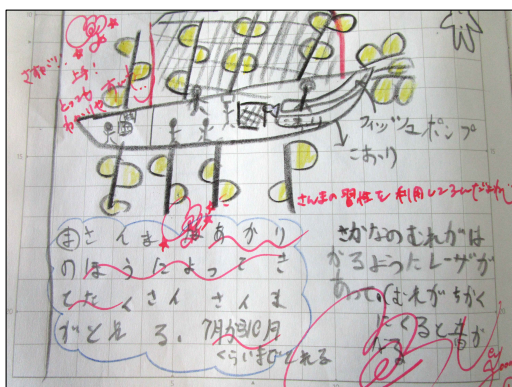 さすが!!
上手!
とっても
わかりやすーい
フィッシュポンプ
こおり
こおり
さんまの習性を利用してるんだよね
ま さんまはあかり
のほうによってき
てたくさんさんま
がとれる、7月から10月
くらいまでとれる
さかなのむれがは
かるよったレーザが
あって(むれがちかく
にくると音が
なる